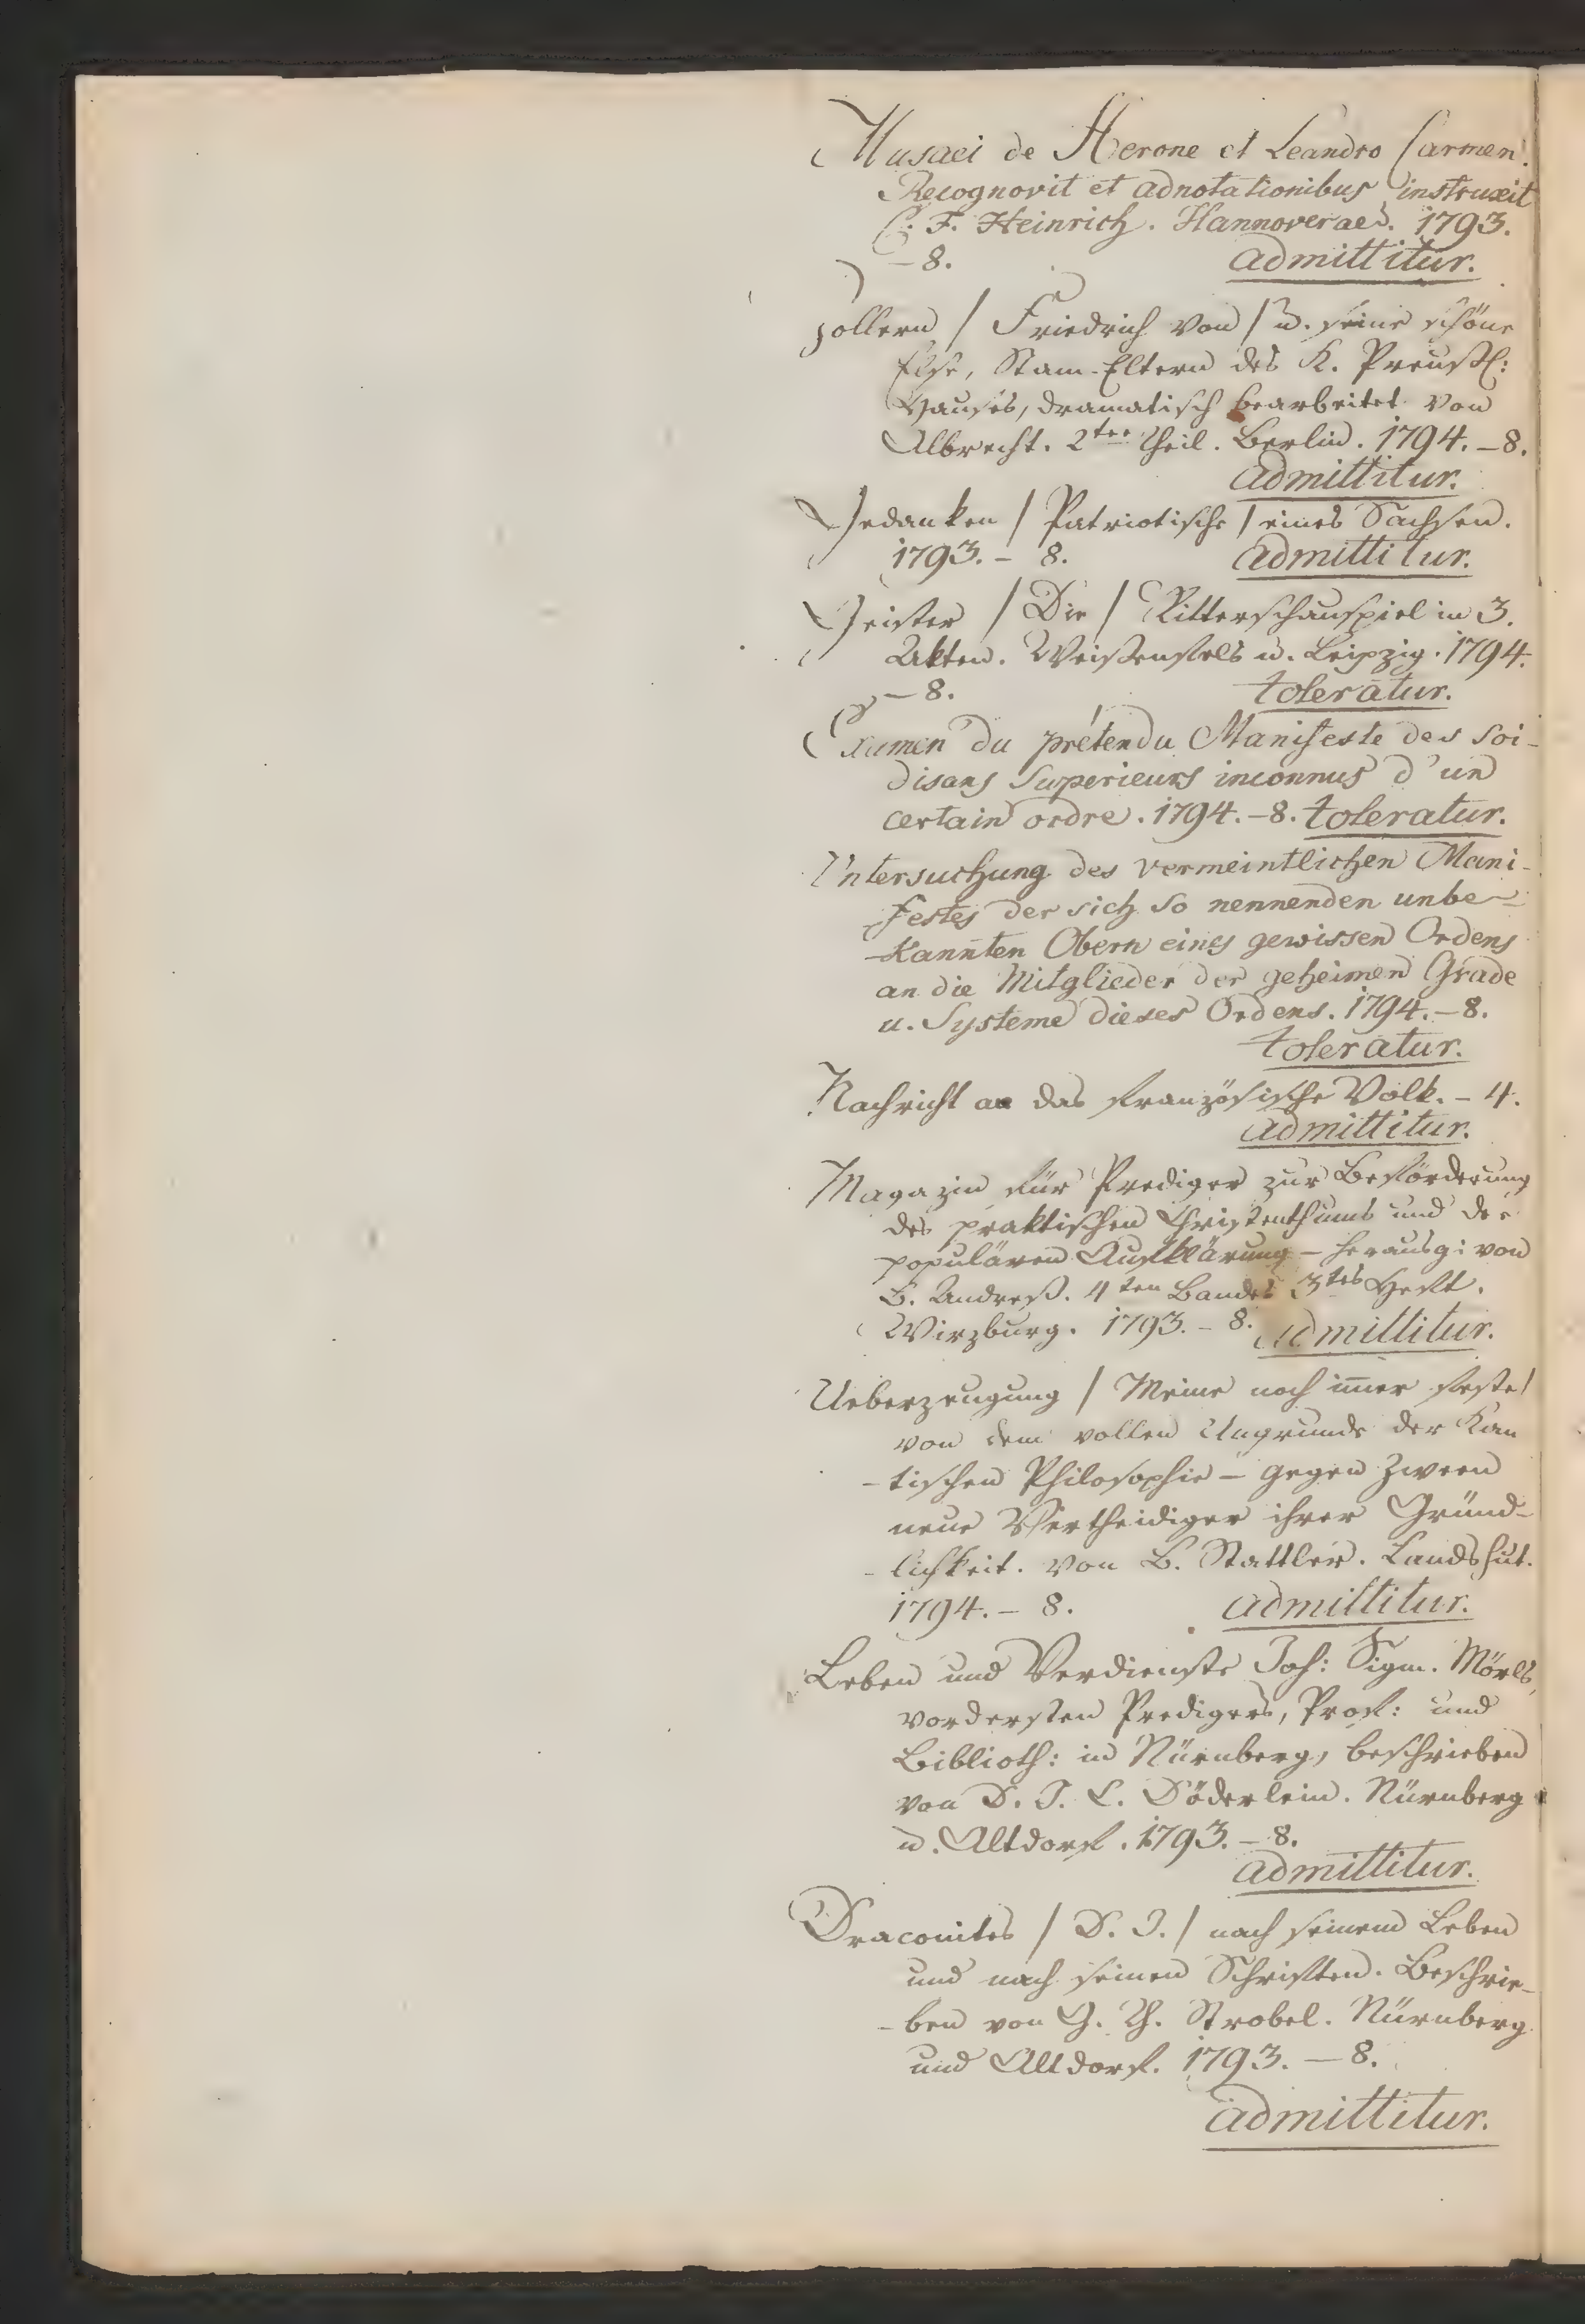 Musaei de Herone et Leandro Carmen.
Recognovit et adnotationibus instruxit
C. F. Heinrich. Hannoverae. 1793.
– 8. admittitur.
Zollern / Friedrich von / u. seine schöne
Else, Stam-Eltern des K. Preußl:
Hauses, dramatisch bearbeitet von
Albrecht. 2ter Theil. Berlin. 1794. – 8.
admittitur.
Gedanken / Patriotische / eines Sachsen.
1793. – 8. admittitur.
Geister / Die / Ritterschauspiel in 3.
Akten. Weißenfels u. Leipzig. 1794.
– 8. toleratur.
Examen du prétendu Manifeste des soi-
disans Superieurs inconnus d'un
certain ordre. 1794. – 8. toleratur.
Untersuchung des vermeintlichen Mani-
festes der sich so nennenden unbe-
-kannten Obern eines gewissen Ordens
an die Mitglieder der geheimen Grade
u. Systeme dieses Ordens. 1794. – 8.
toleratur.
Nachricht an das französische Volk. – 4.
admittitur.
Magazin für Prediger zur Beförderung
des praktischen Christenthums und der
populären Aufklärung – herausg: von
B. Andreß. 4ten Bandes 3tes Heft.
Wirzburg. 1793. – 8. admittitur.
Ueberzeugung / Meine noch im̅er feste /
von dem vollen Ungrunde der Kan
-tischen Philosophie – gegen zween
neue Vertheidiger ihrer Gründ-
-lichkeit. von B. Stattler. Landshut.
1794. – 8. admittitur.
Leben und Verdienste Joh: Sigm. Mörls,
vordersten Predigers, Prof: und
Biblioth: in Nürnberg, beschrieben
von D. J. C. Döderlein. Nürnberg
u. Altdorf. 1793. – 8.
admittitur.
Draconites / D. J. / nach seinem Leben
und nach seinen Schriften. Beschrie-
-ben von G. Th. Strobel. Nürnberg
und Altdorf. 1793. – 8.
admittitur.